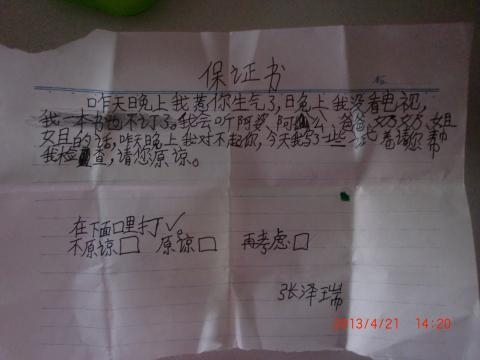 保证书
昨天晚上我惹你生气了,日免上我没看电视,
我一本书也不订了。我会听阿婆、阿公、爸爸、妈妈、姐
姐的话,昨天晚上我对不起你,今天我写了些 着请您帮
我检查,请您原谅。
在下面口里打√。
不原谅□ 原谅□ 再考虑□
张泽瑞
2013/4/21 14:20